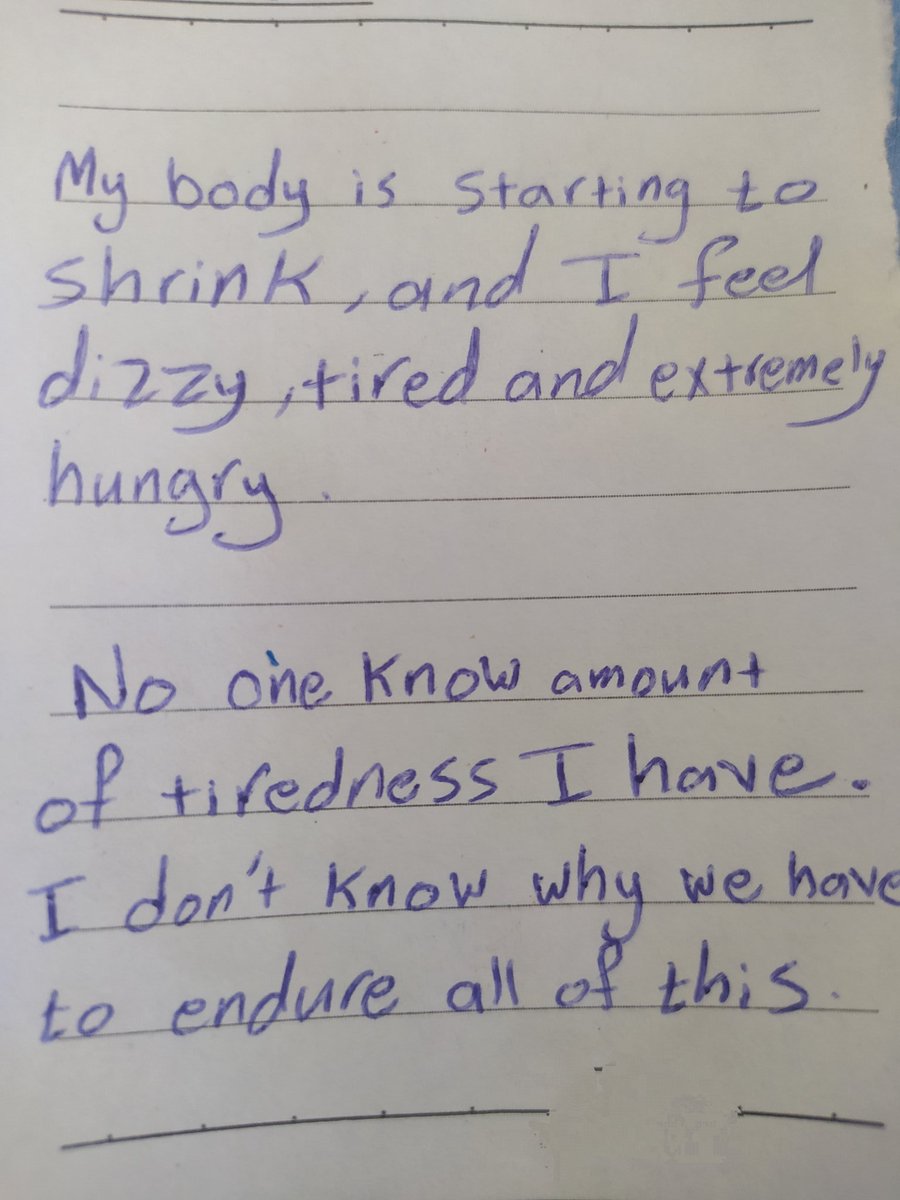 My body is starting to
shrink, and I feel
dizzy, tired and extremely
hungry.
No one know amount
of tiredness I have.
I don't know why we have
to endure all of this.